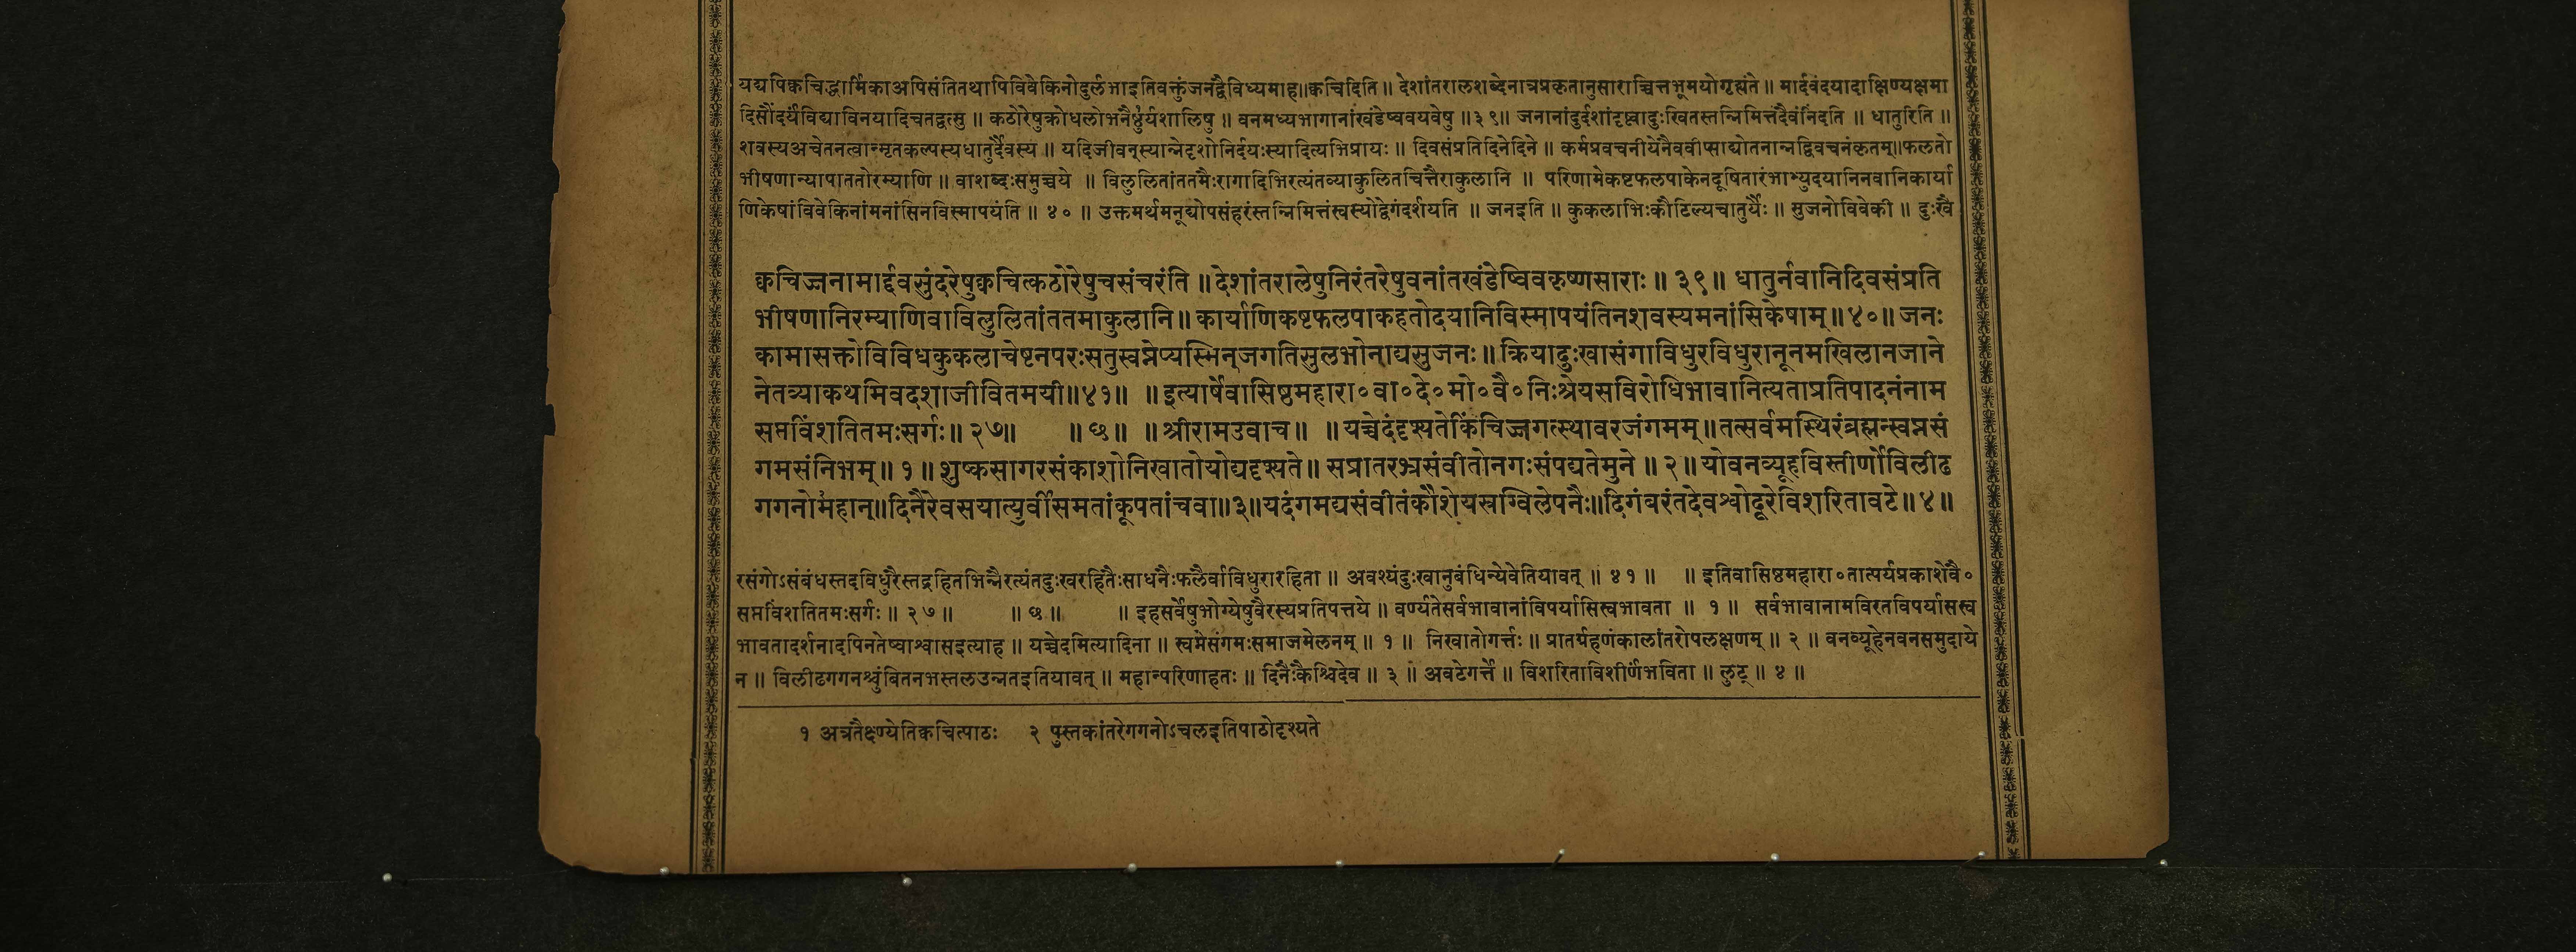 यद्यपिक्वचिद्धार्मिकाअपिसंतितथापिविवेकिनोदुर्लभाइतिवक्तुंजनद्वैविध्यमाह॥क्वचिदिति॥ देशांतरालशब्देनात्रप्रकृतानुसाराच्चित्तभूमयोगृह्यंते॥ मार्दवंदयादाक्षिण्यक्षमा
दिसौंदर्यंविद्याविनयादिचतद्वत्सु॥ कठोरेषुक्रोधलोभनैर्ष्ठुर्यशालिषु॥ वनमध्यभागानांखंडेष्ववयवेषु॥३९॥ जनानांदुर्दशांदृष्ट्वादुःखितस्तन्निमित्तंदैवंनिंदति॥ धातुरिति॥
शवस्यअचेतनत्वान्मृतकल्पस्यधातुर्दैवस्य॥ यदिजीवन्स्यान्नेदृशोनिर्दयःस्यादित्यभिप्रायः॥ दिवसंप्रतिदिनेदिने॥ कर्मप्रवचनीयेनैववीप्साद्योतनान्नद्विवचनंकृतम्॥फलतो
भीषणान्यापाततोरम्याणि॥ वाशब्दःसमुच्चये॥ विलुलितांततमैःरागादिभिरत्यंतव्याकुलितचित्तैराकुलानि॥ परिणामेकष्टफलपाकेनदूषितारंभाभ्युदयानिनवानिकार्या
णिकेषांविवेकिनांमनांसिनविस्मापयंति॥ ४०॥ उक्तमर्थमनूद्योपसंहरंस्तन्निमित्तंस्वस्योद्वेगंदर्शयति॥ जनइति॥ कुकलाभिःकौटिल्यचातुर्यैः॥ सुजनोविवेकी॥ दुःखै
क्वचिज्जनामार्द्दवसुंदरेषुक्वचित्कठोरेषुचसंचरंति॥देशांतरालेषुनिरंतरेषुवनांतखंडेष्विवकृष्णसाराः॥३९॥ धातुर्नवानिदिवसंप्रति
भीषणानिरम्याणिवाविलुलितांततमाकुलानि॥कार्याणिकष्टफलपाकहतोदयानिविस्मापयंतिनशवस्यमनांसिकेषाम्॥४०॥जनः
कामासक्तोविविधकुकलाचेष्टनपरःसतुस्वप्नेप्यस्मिन्जगतिसुलभोनाद्यसुजनः॥क्रियादुःखासंगाविधुरविधुरानूनमखिलानजाने
नेतव्याकथमिवदशाजीवितमयी॥४१॥ ॥इत्यार्षेवासिष्ठमहारा०वा०दे०मो०वै०निःश्रेयसविरोधिभावानित्यताप्रतिपादनंनाम
सप्तविंशतितमःसर्गः॥२७॥ ॥छ॥ ॥श्रीरामउवाच॥ ॥यच्चेदंदृश्यतेकिंचिज्जगत्स्थावरजंगमम्॥तत्सर्वमस्थिरंब्रह्मन्स्वप्नसं
गमसंनिभम्॥१॥शुष्कसागरसंकाशोनिखातोयोद्यदृश्यते॥सप्रातरभ्रसंवीतोनगःसंपद्यतेमुने॥२॥योवनव्यूहविस्तीर्णोविलीढ
गगनोर्महान्॥दिनैरेवसयात्युर्वीसमतांकूपतांचवा॥३॥यदंगमद्यसंवीतंकौशेयस्रग्विलेपनैः॥दिगंबरंतदेवश्वोदूरेविशरितावटे॥४॥
रसंगोऽसंबंधस्तदविधुरैस्तद्रहितभिन्नैरत्यंतदुःखरहितैःसाधनैःफलैर्वाविधुरारहिता॥ अवश्यंदुःखानुबंधिन्येवेतियावत्॥ ४१॥ ॥इतिवासिष्ठमहारा०तात्पर्यप्रकाशेवै०
सप्तविंशतितमःसर्गः॥ २७॥ ॥छ॥ ॥इहसर्वेषुभोग्येषुवैरस्यप्रतिपत्तये॥ वर्ण्यतेसर्वभावानांविपर्यासिस्वभावता॥ १॥ सर्वभावानामविरतविपर्यासस्व
भावतादर्शनादपिनतेष्वाश्वासइत्याह॥ यच्चेदमित्यादिना॥ स्वप्नेसंगमःसमाजमेलनम्॥ १॥ निखातोगर्त्तः॥ प्रातर्ग्रहणंकालांतरोपलक्षणम्॥ २॥ वनव्यूहेनवनसमुदाये
न॥ विलीढगगनश्चुंबितनभस्तलउन्नतइतियावत्॥ महान्परिणाहतः॥ दिनैःकैश्चिदेव॥ ३॥ अवटेगर्त्ते॥ विशरिताविशीर्णंभविता॥ लुट्॥ ४॥
१ अत्रतैक्ष्ण्येतिक्वचित्पाठः २ पुस्तकांतरेगगनोऽचलइतिपाठोदृश्यते